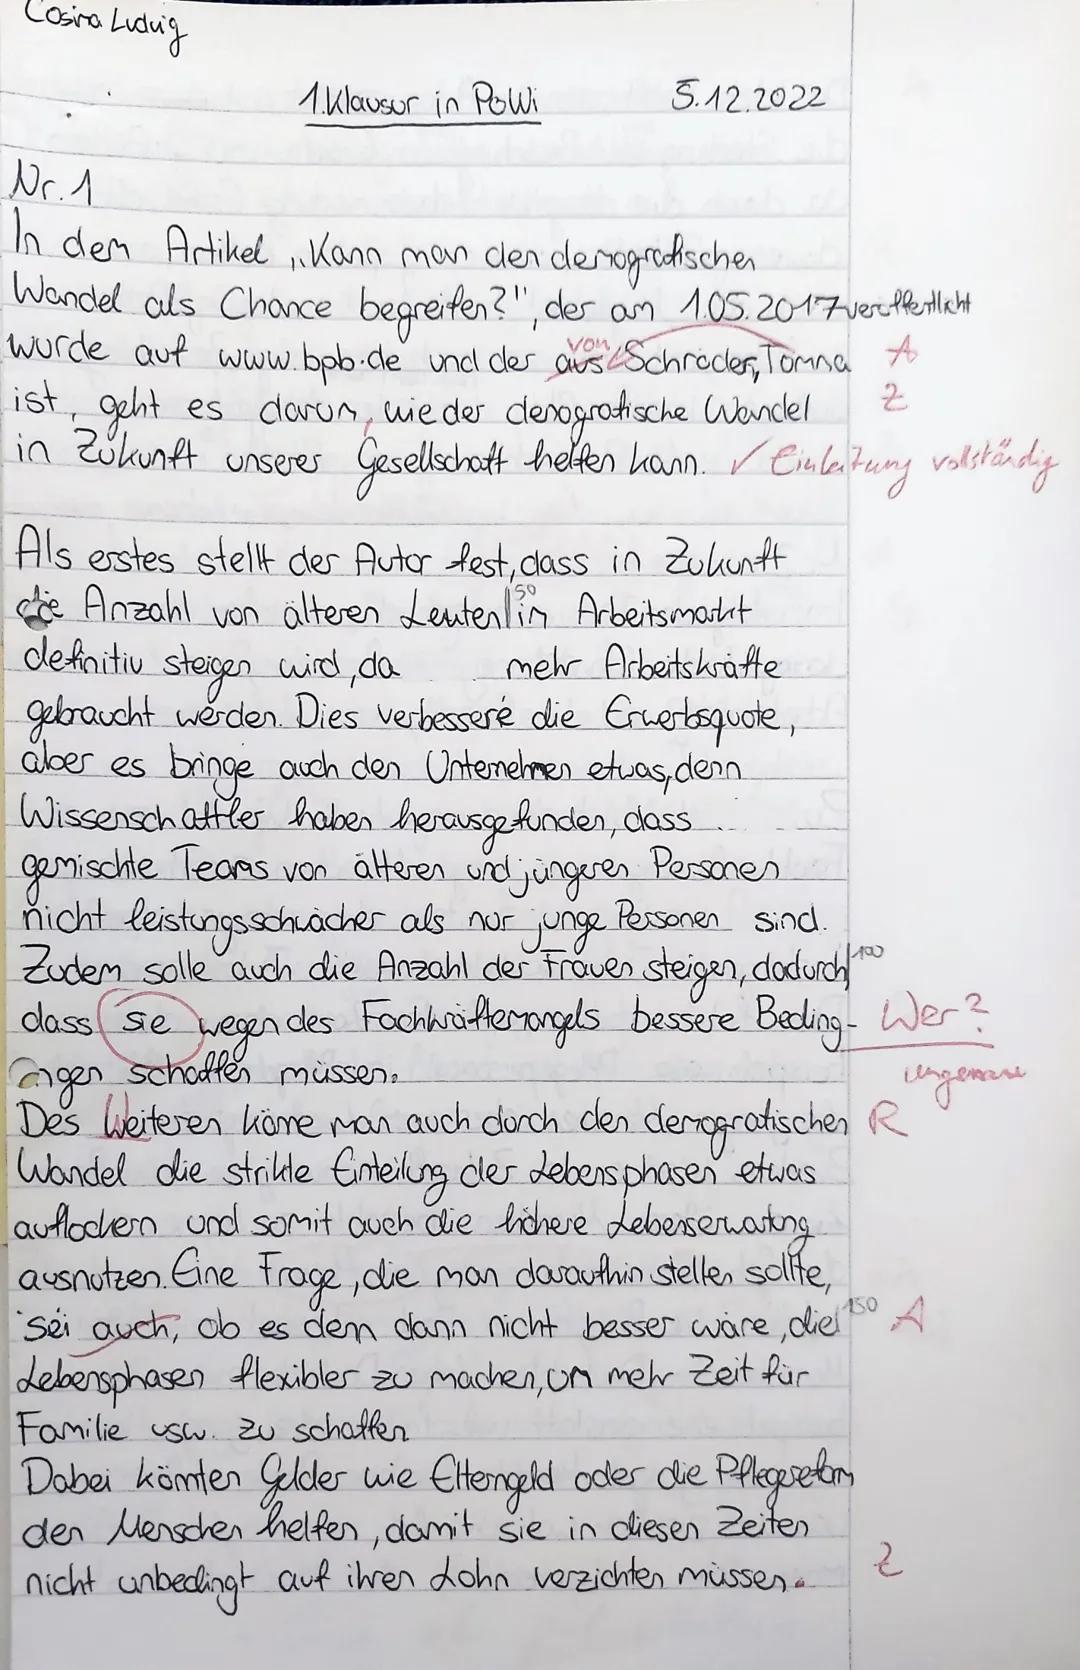 Cosima Ludwig
1. Klausur in PoWi 5.12.2022
Nr. 1
In dem Artikel „Kann man den demografischen
Wandel als Chance begreifen?", der am 1.05.2017 veröffentlicht
wurde auf www.bpb.de und der aus von Schröder, Tomna A
ist, geht es darum, wie der demografische Wandel Z
in Zukunft unserer Gesellschaft helfen kann. ✓ Einleitung vollständig
Als erstes stellt der Autor fest, dass in Zukunft
die Anzahl von älteren Leuten 50 im Arbeitsmarkt
definitiv steigen wird, da mehr Arbeitskräfte
gebraucht werden. Dies verbessere die Erwerbsquote,
aber es bringe auch den Unternehmen etwas, denn
Wissenschaftler haben herausgefunden, dass
gemischte Teams von älteren und jüngeren Personen
nicht leistungsschwächer als nur junge Personen sind.
Zudem solle auch die Anzahl der Frauen steigen, dadurch 100
dass sie wegen des Fachkräftemangels bessere Beding- Wer?
ungen schaffen müssen. ungenau
Des Weiteren käme man auch durch den demografischen R
Wandel die strikte Einteilung der Lebensphasen etwas
auflockern und somit auch die höhere Lebenserwartung
ausnutzen. Eine Frage, die man daraufhin stellen sollte,
sei auch, ob es denn dann nicht besser wäre, die 150 A
Lebensphasen flexibler zu machen, um mehr Zeit für
Familie usw. zu schaffen
Dabei könnten Gelder wie Elterngeld oder die Pflegereform
den Menschen helfen, damit sie in diesen Zeiten
nicht unbedingt auf ihren Lohn verzichten müssen. Z